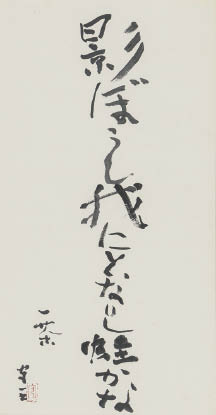 影ぼうし我にとなりし蛙かな
一茶